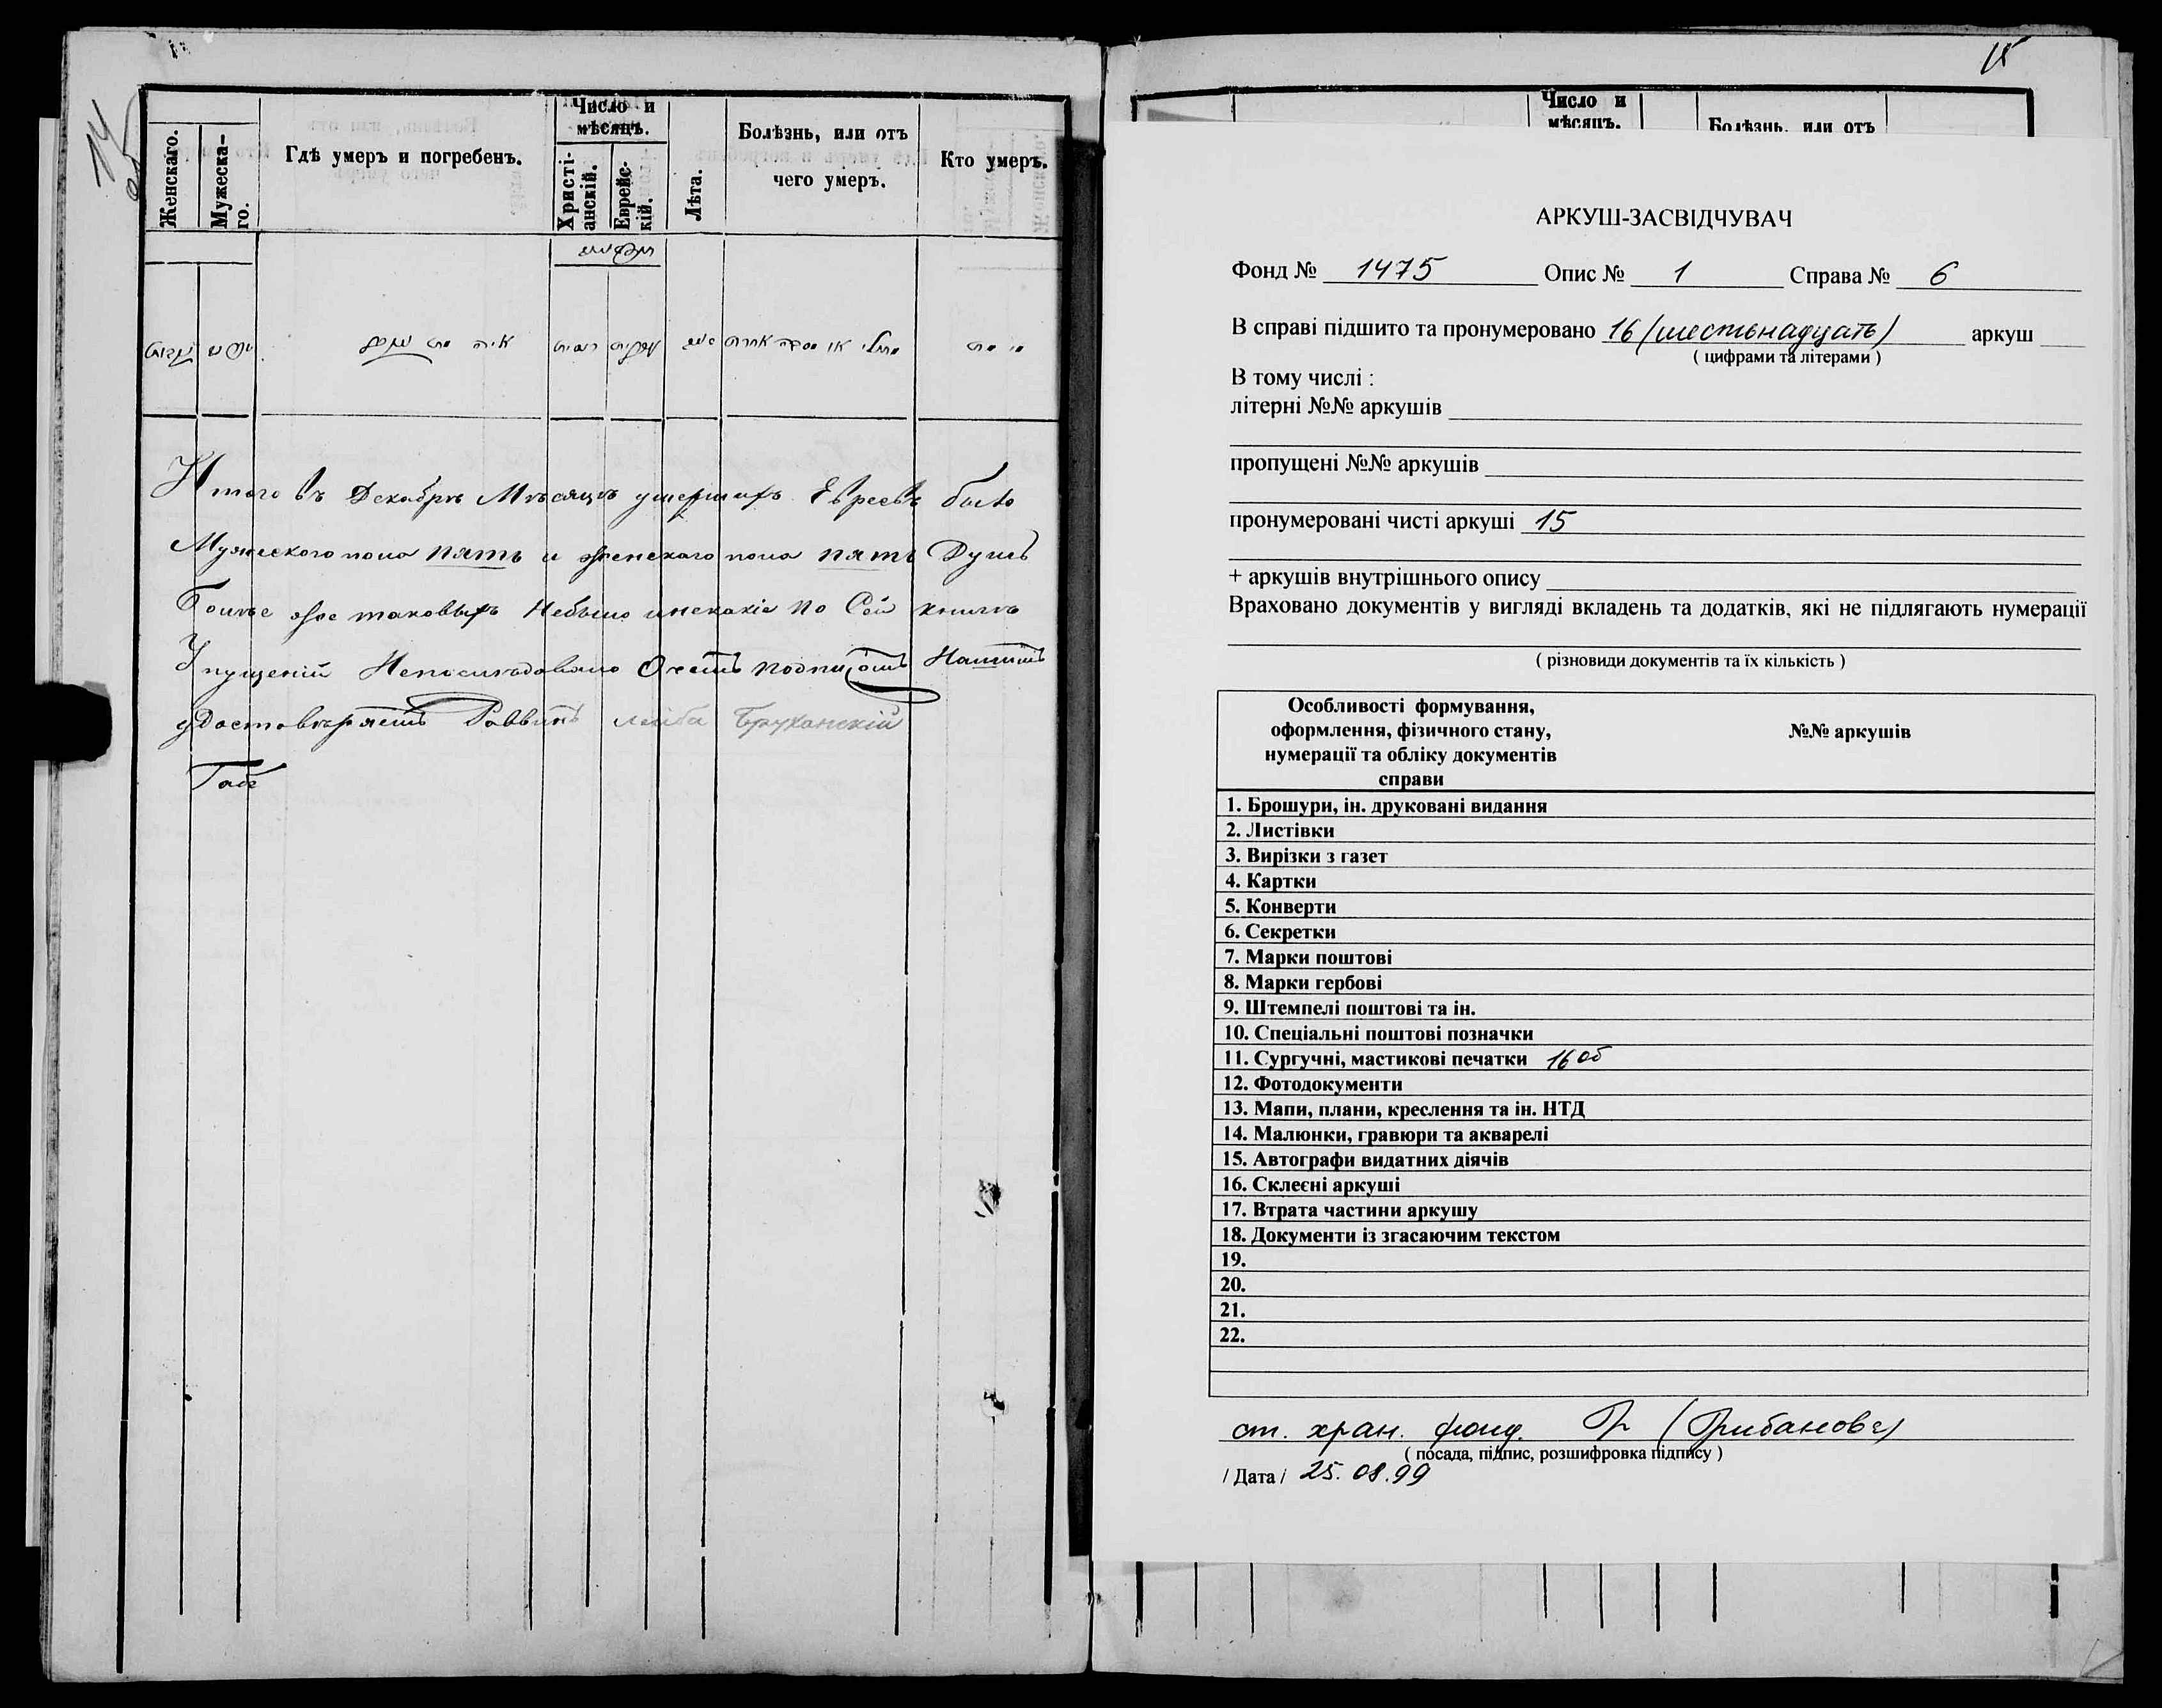 14
об
Женскаго.
Мужеска-
го.
Гдѣ умеръ и погребенъ.
Число и
мѣсяцъ.
Христі-
анскій.
Еврейс-
кій.
Лѣта.
Болѣзнь, или отъ
чего умеръ.
Кто умеръ.
Итого въ Декабрѣ Мѣсяцѣ умершихъ Евреевъ было
Мужескаго пола пять и женскаго пола пять Душъ
Болѣе же таковыхъ Небыло по Сей книгѣ
Упущеній Непослѣдовало
удостовѣряетъ Раввинъ Лейба Бруханскій
Число и
мѣсяцъ.
Болѣзнь, или отъ
АРКУШ-ЗАСВІДЧУВАЧ
Фонд № 1475 Опис № 1 Справа № 6
В справі підшито та пронумеровано 16 (шестьнадцать) аркуш
( цифрами та літерами )
В тому числі :
літерні №№ аркушів
пропущені №№ аркушів
пронумеровані чисті аркуші 15
+ аркушів внутрішнього опису
Враховано документів у вигляді вкладень та додатків, які не підлягають нумерації
( різновиди документів та їх кількість )
Особливості формування,
оформлення, фізичного стану,
нумерації та обліку документів
справи
№№ аркушів
1. Брошури, ін. друковані видання
2. Листівки
3. Вирізки з газет
4. Картки
5. Конверти
6. Секретки
7. Марки поштові
8. Марки гербові
9. Штемпелі поштові та ін.
10. Спеціальні поштові позначки
11. Сургучні, мастикові печатки 16 об
12. Фотодокументи
13. Мапи, плани, креслення та ін. НТД
14. Малюнки, гравюри та акварелі
15. Автографи видатних діячів
16. Склеєні аркуші
17. Втрата частини аркушу
18. Документи із згасаючим текстом
19.
20.
21.
22.
ст. хран. фонд. (Грибанова)
( посада, підпис, розшифровка підпису )
/ Дата / 25.08.99